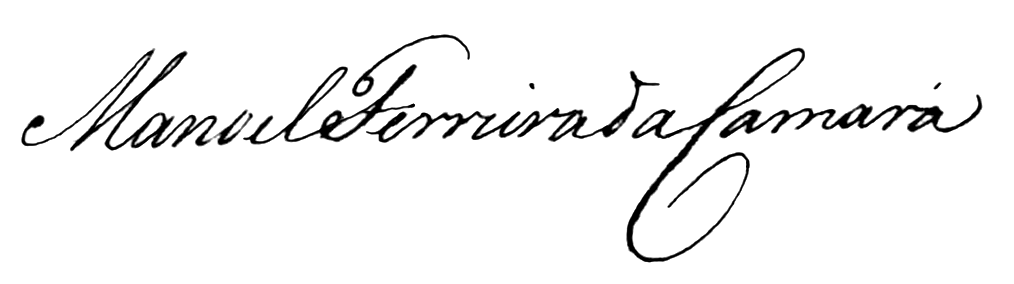 Manoel Ferreira da Camará